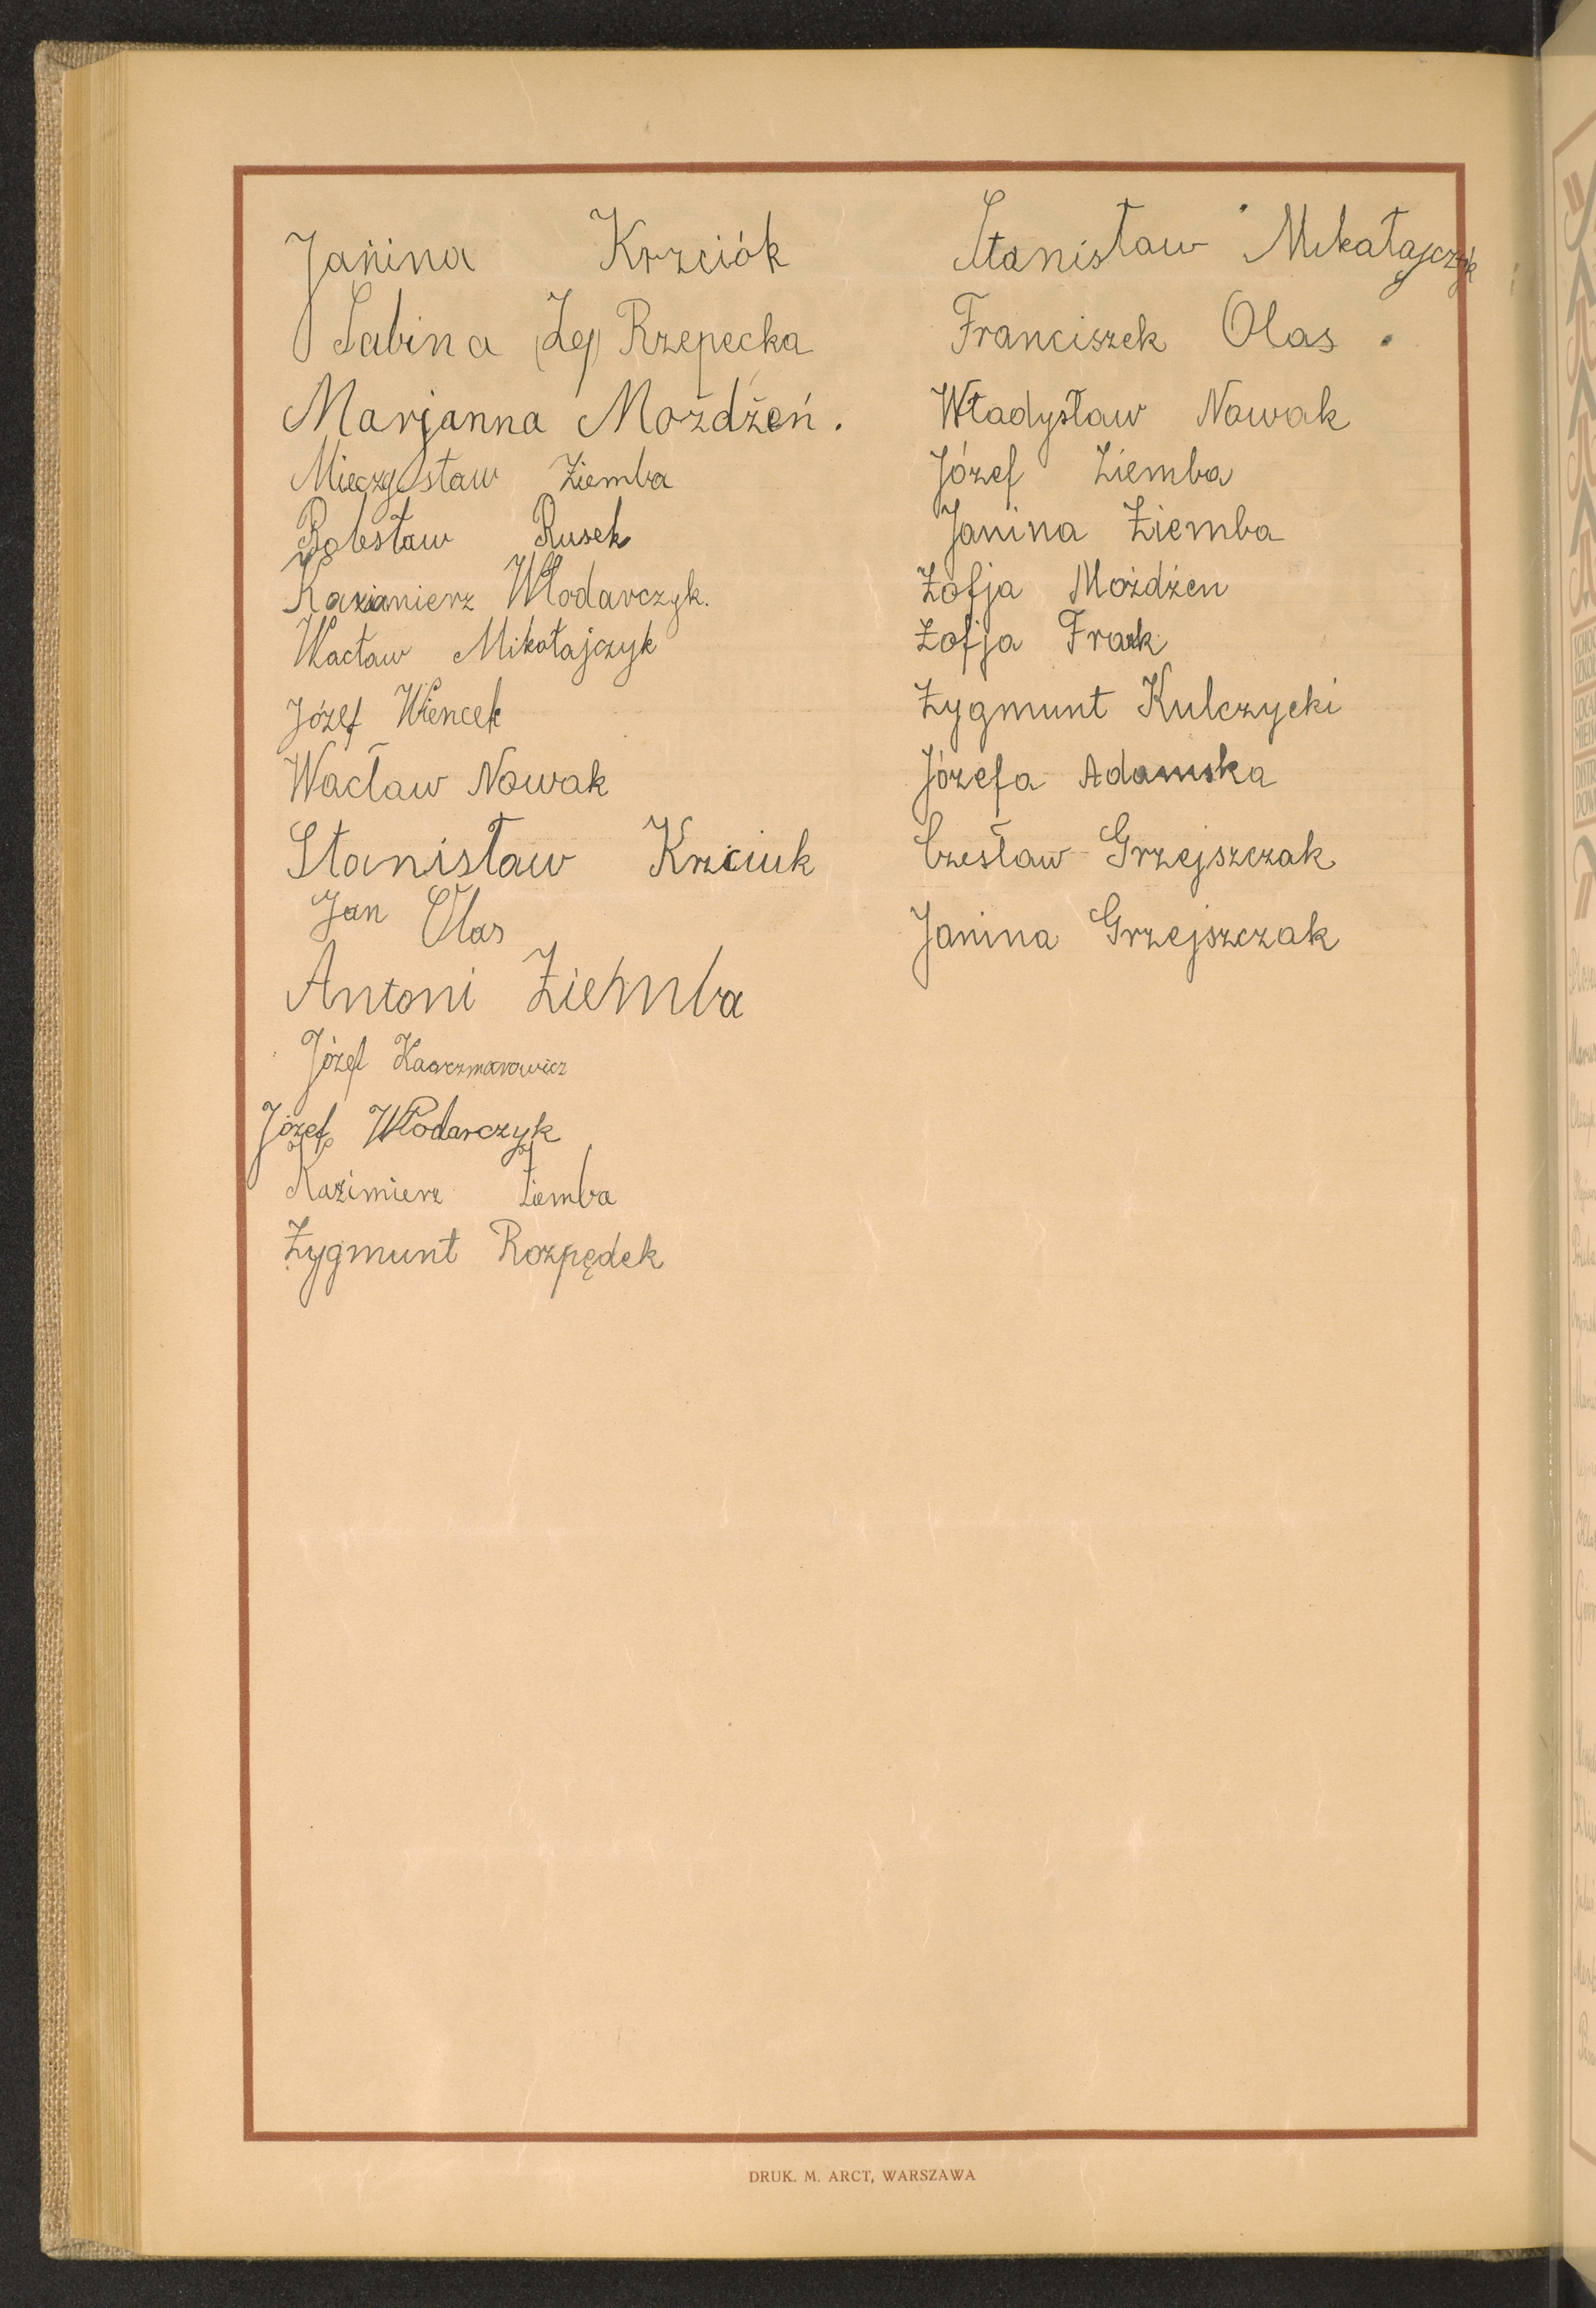 Janina Krzciók
Sabina (Zep) Rzepecka
Marjanna Możdżeń.
Mieczysław Ziemba
Bolesław Rusek
Kazimierz Włodarczyk.
Wacław Mikołajczyk
Józef Wiencek
Wacław Nowak
Stanisław Krzciuk
Jan Olas
Antoni Ziemba
Józef Kaczmarowicz
Józef Włodarczyk
Kazimierz Ziemba
Zygmunt Rozpędek
Stanisław Mikałajczyk
Franciszek Olas.
Władysław Nowak
Józef Ziemba
Janina Ziemba
Zofja Możdżen
Zofja Frak
Zygmunt Kulczycki
Józefa Adamska
Czesław Grzejszczak
Janina Grzejszczak
DRUK. M. ARCT, WARSZAWA